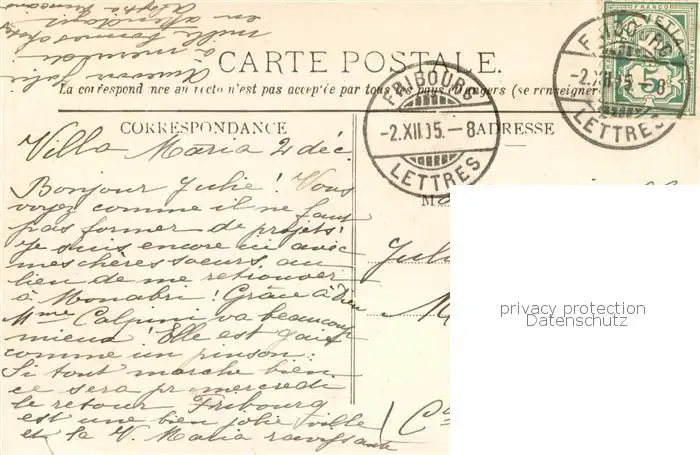 CARTE POSTALE.
La correspondance au recto n'est pas acceptée par tous les pays étrangers (se renseigner
FRIBOURG
-2.XII.05.-8
LETTRES
FRIBOURG
-2.XII.05.-8
LETTRES
FRANCO
5
CORRESPONDANCE
ADRESSE
Villa Maria 2 déc.
Bonjour Julie! Vous
voyez comme il ne faut
pas former de projets!
Je suis encore ici avec
mes chères soeurs au
lieu de me retrouver
à Monabri! Grâce à Dieu
Mme Calpini va beaucoup
mieux! Elle est gaie
comme un pinson.
Si tout marche bien
ce sera pr mercredi
le retour Fribourg
est une bien jolie ville
et la V. Maria ravissante
mille bonnes choses
en attendant
privacy protection
Datenschutz